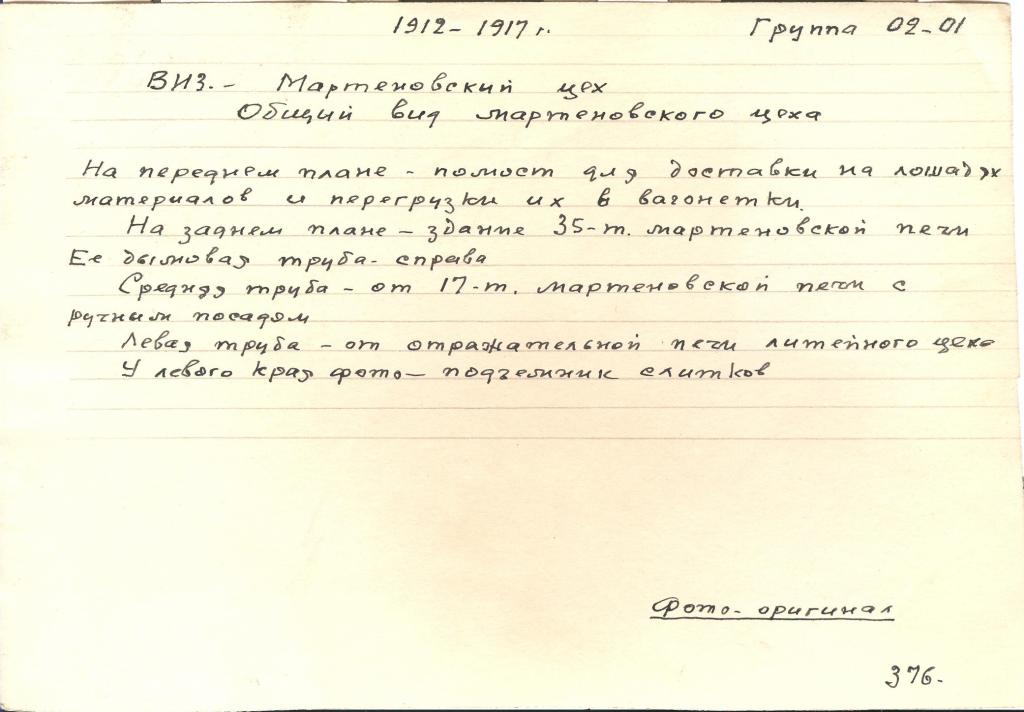 1912-1917 г. Группа 02-01
ВИЗ. - Мартеновский цех
Общий вид мартеновского цеха
На переднем плане - помост для доставки на лошадях
материалов и перегрузки их в вагонетки.
На заднем плане - здание 35-т. мартеновской печи
Ее дымовая труба - справа
Средняя труба - от 17-т. мартеновской печи с
ручным посадом
Левая труба - от отражательной печи литейного цеха
У левого края фото - подъемник слитков
Фото-оригинал
376.